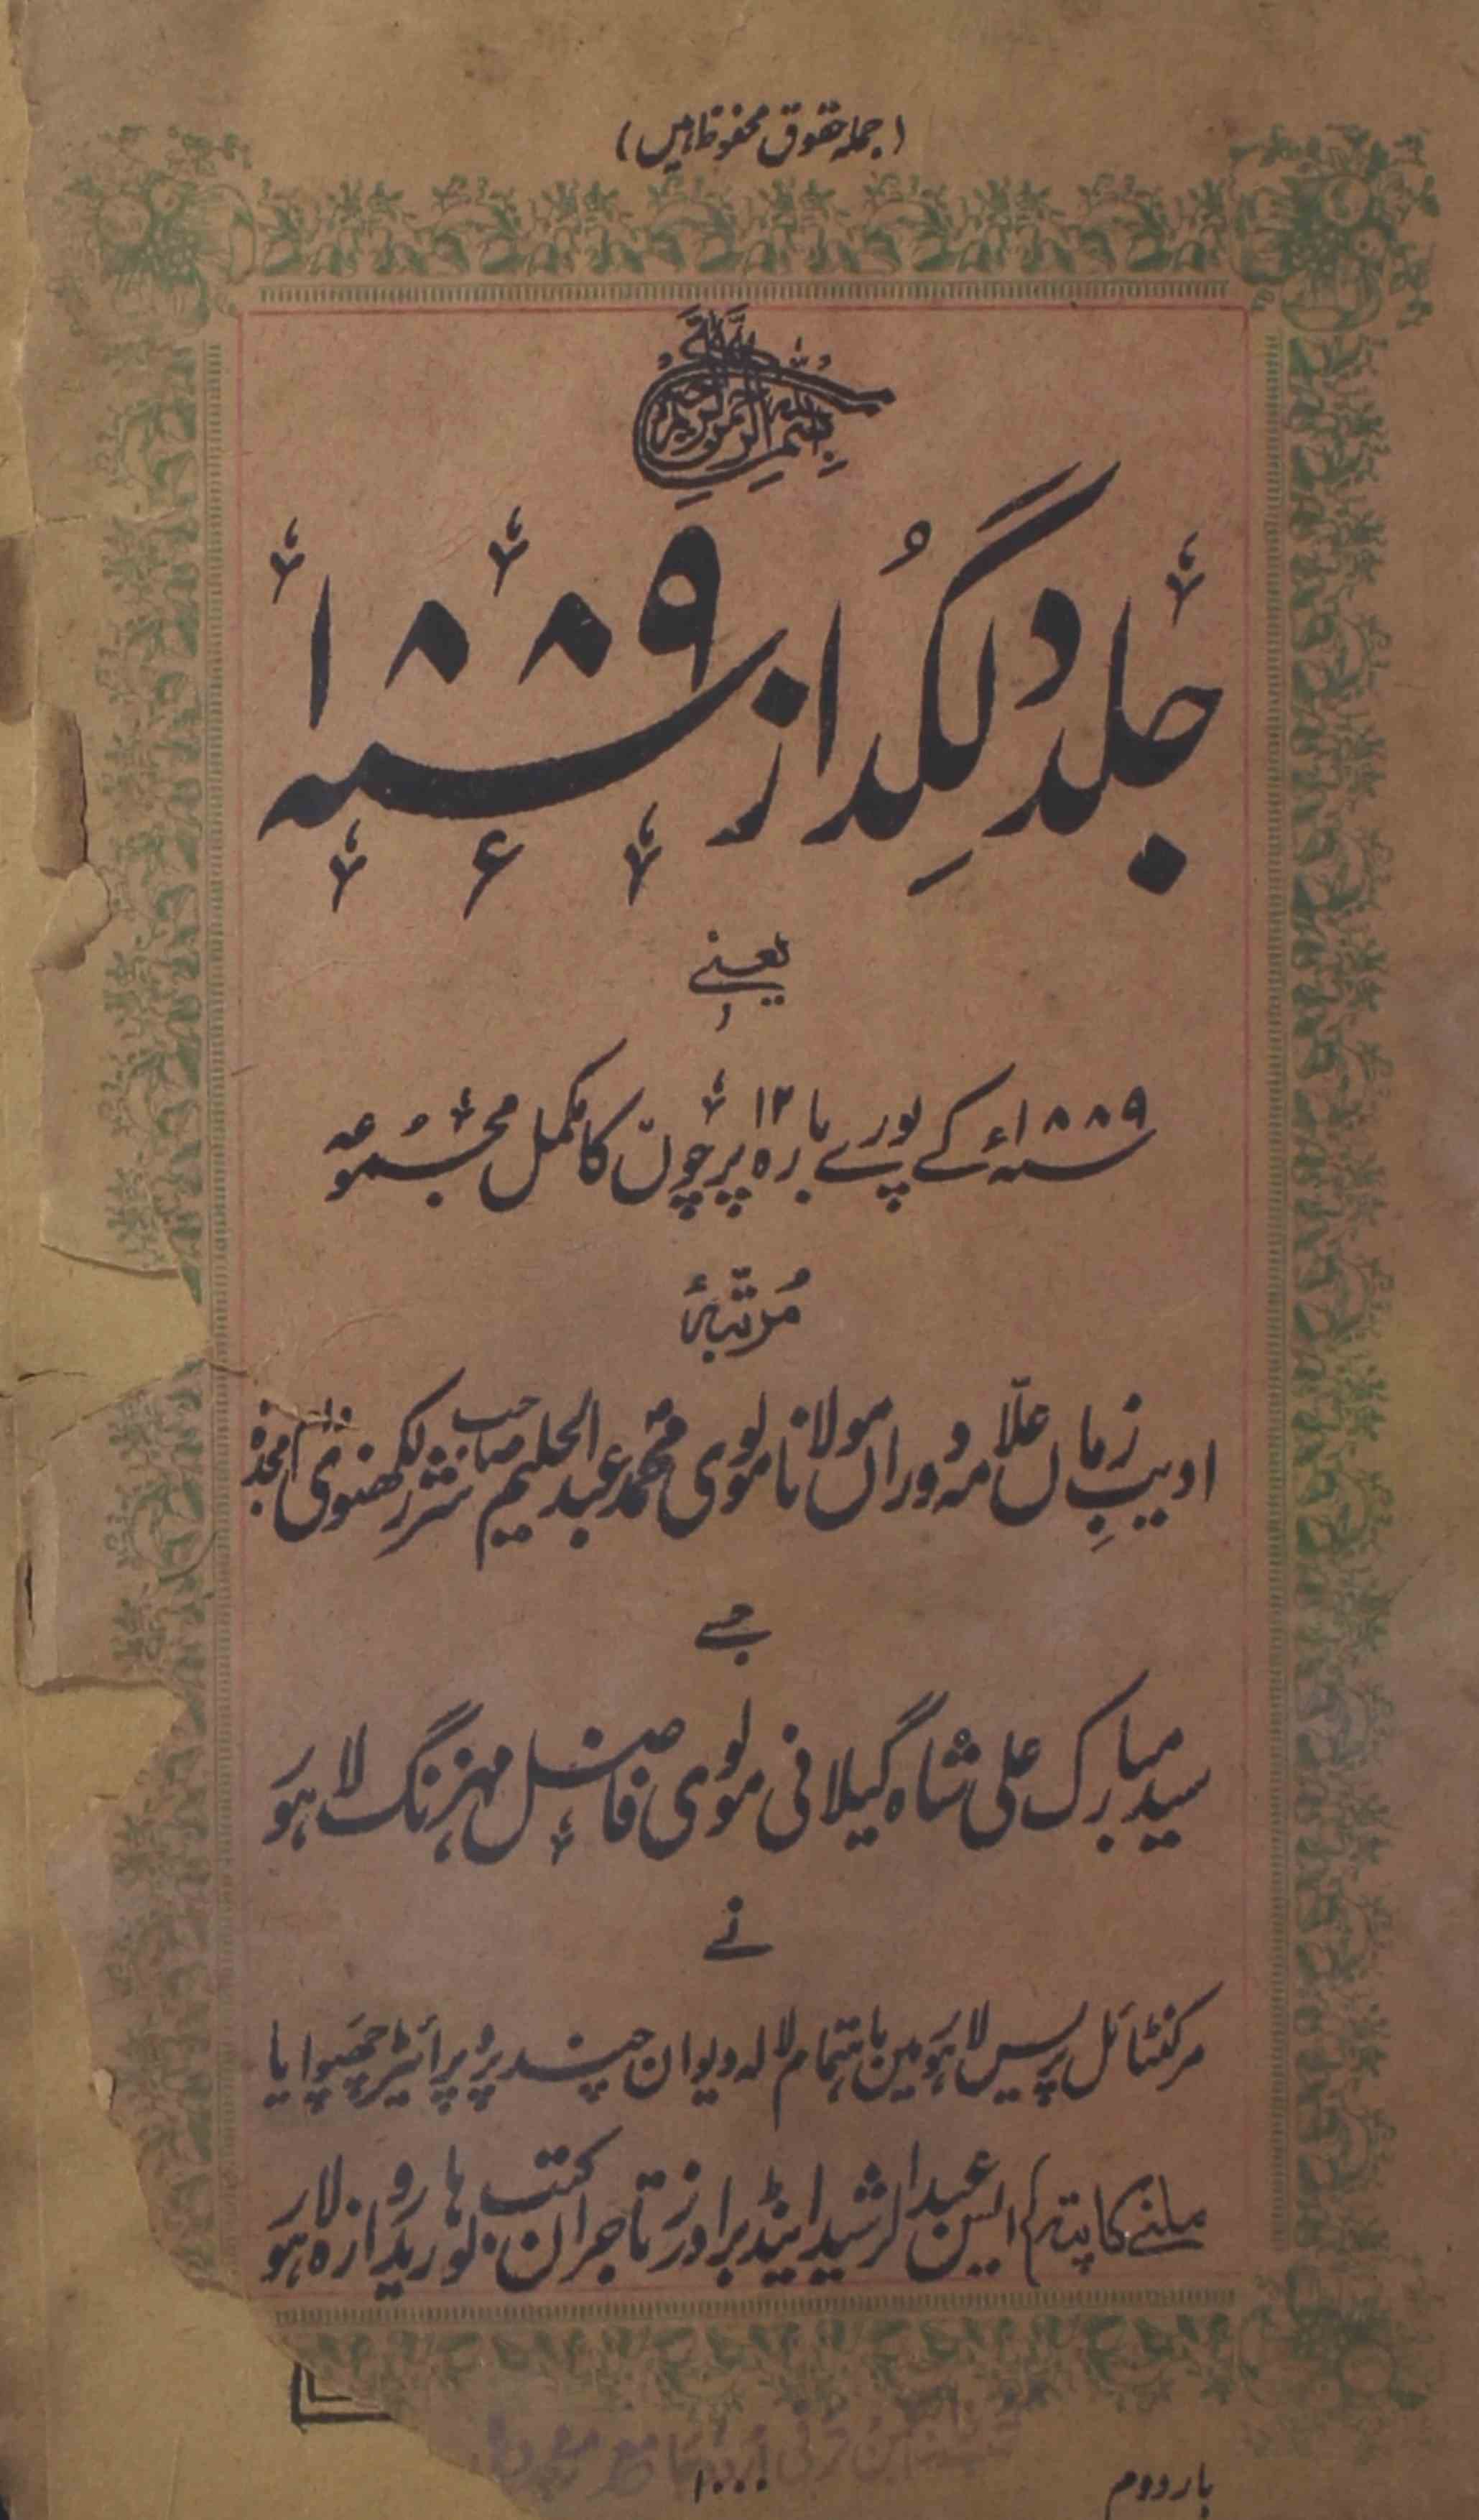 (جملہ حقوق محفوظ ہیں)
بسم اللہ الرحمن الرحیم
جلد دلگداز سنہ ۱۸۸۹ء
یعنے
سنہ ۱۸۸۹ء کے پورے بارہ ۱۲ پرچوں کا مکمل مجموعہ
مرتبہٴ
ادیبِ زماں علّامہ دوراں مولانا مولوی محمد عبدالحلیم صاحب شرر لکھنوی
جسے
سید مبارک علی شاہ گیلانی مولوی فاضل مہزنگ لاہور
نے
مرکنٹائل پریس لاہور مین باہتمام لالہ دیوان چند پروپرائیٹر چھپوایا
ملنے کا پتہ ایس عبدالرشید اینڈ برادرز تاجران کتب لوہاریدروازہ لاہور
بار دوم
۱۰۰۰